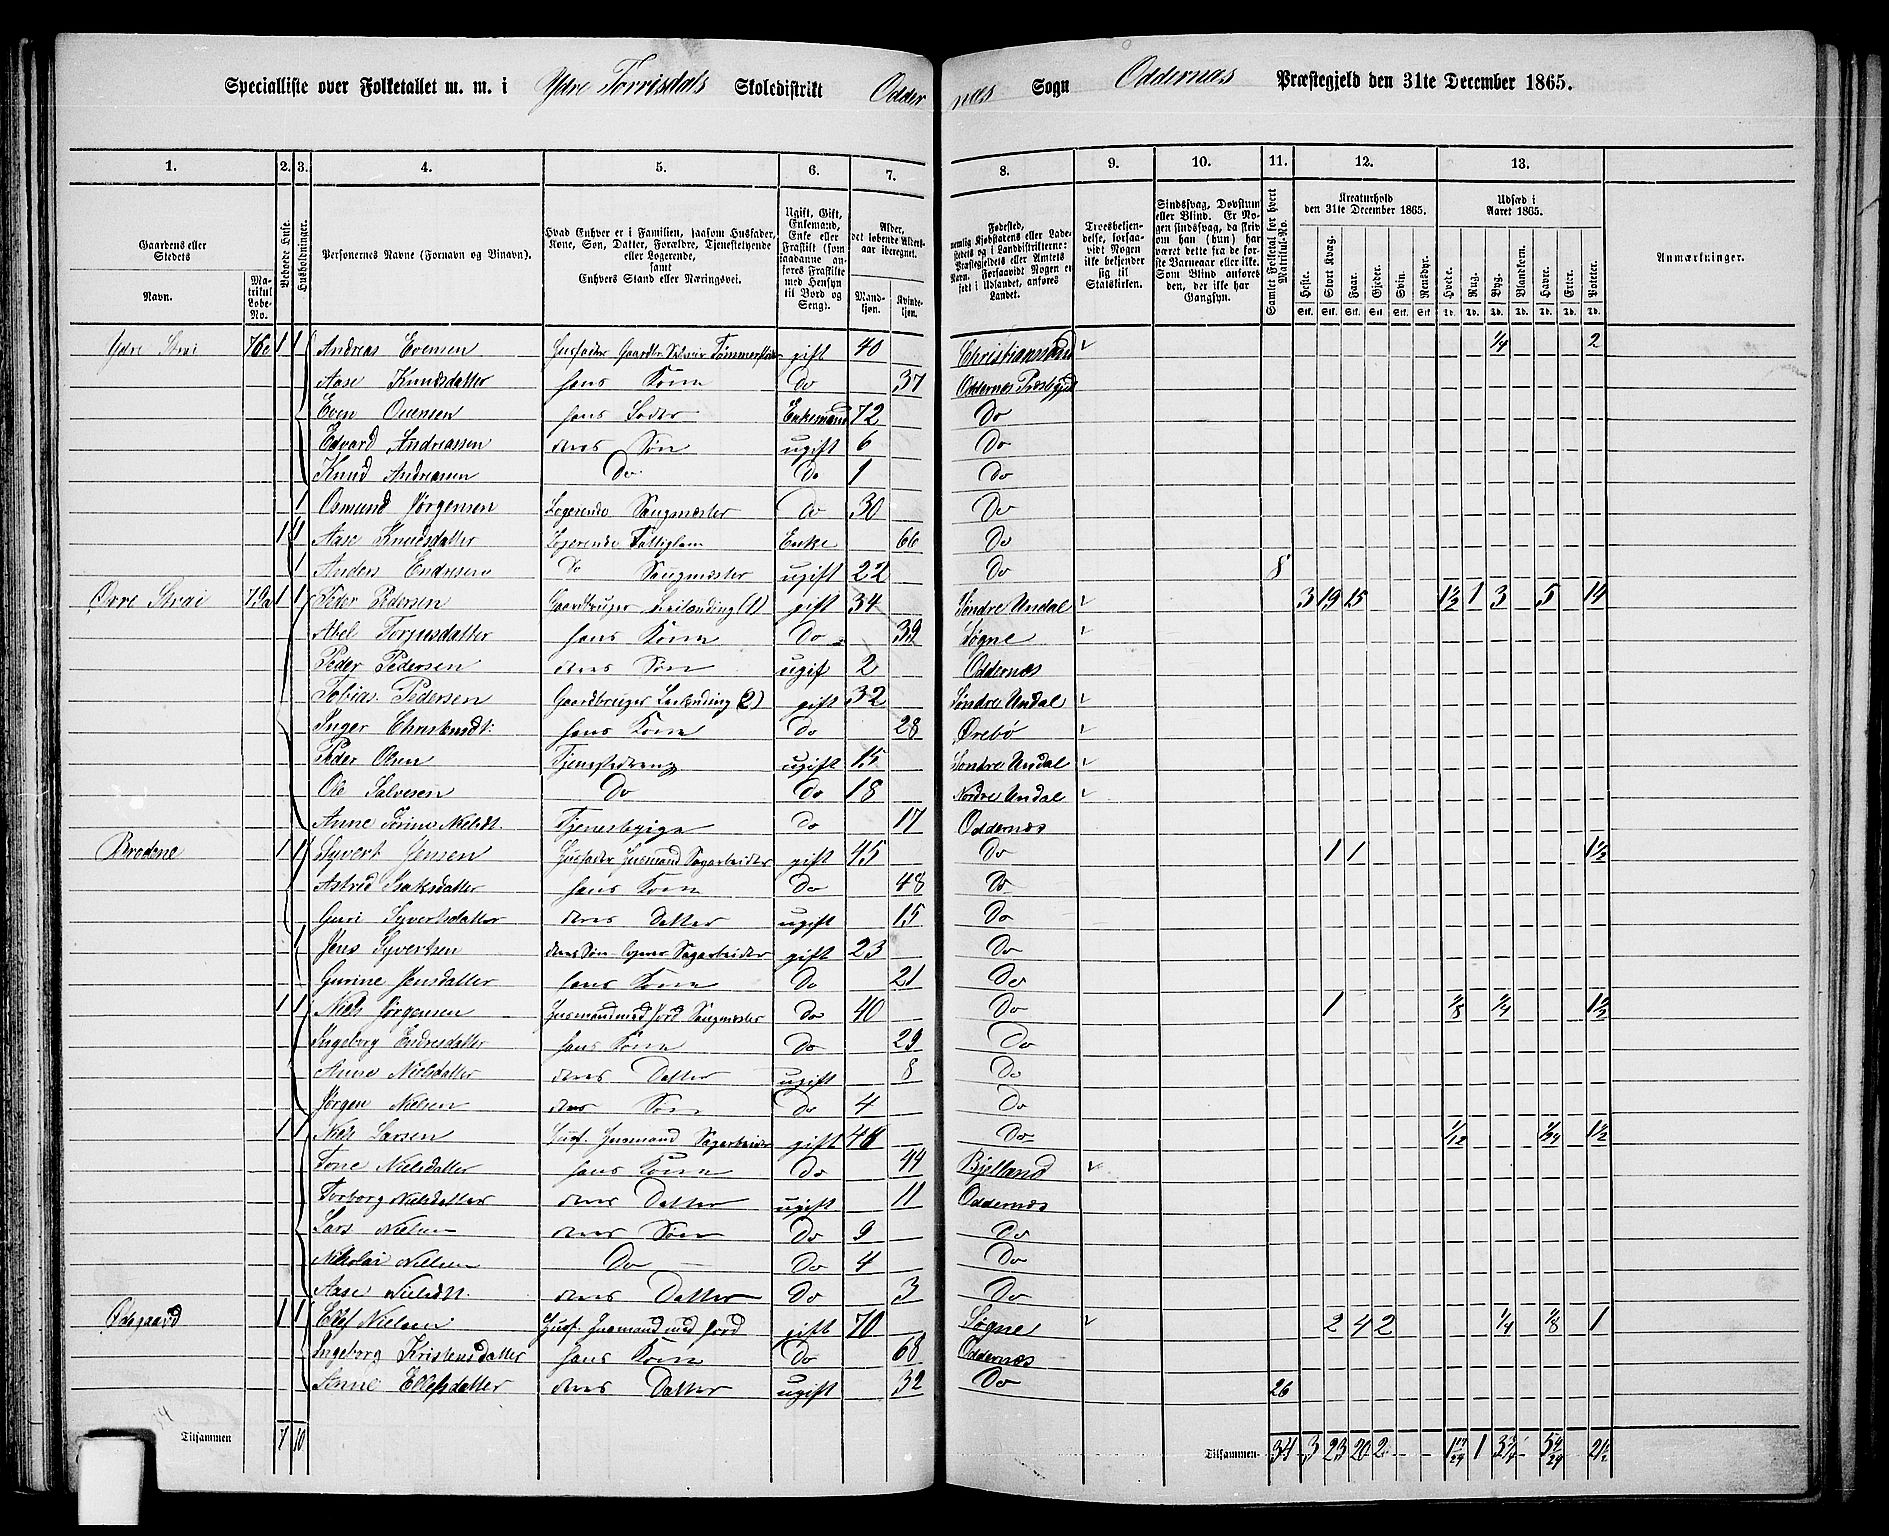 Specialliste over Folketallet m. m. i Ydre Torrisdals Skoledistrikt Oddernæs Sogn Oddernæs Præstegjeld den 31te December 1865.
1. 2. 3. 4. 5. 6. 7. 8. 9. 10. 11. 12. 13.
Gaardens eller Stedets Navn. Matrikul Løbe-No. Beboede Huse. Husholdninger. Personernes Navne (Fornavn og Tilnavn). Hvad Enhver er i Familien, saasom Husfader, Kone, Søn, Datter, Forældre, Tjenestetyende eller Logerende, samt Enhvers Stand eller Næringsvei. Alder, det løbende Aldersaar iberegnet. Mandkjøn. Kvindekjøn.
Troesbekjendelse, forsaavidt Nogen ikke bekjender sig til Statskirken. Samlet Folketal for hvert Matrikul-No. Kreaturhold den 31te December 1865. Udsæd i Aaret 1865. Anmærkninger.
Heste. Stort Kvæg. Faar. Gjeder. Svin. Rensdyr. Hvede. Rug. Byg. Blandkorn. Havre. Erter. Poteter.
Ydre Strai 76c 1 1 Andreas Evensen gift 40 Christianssand ¼ 2
Aase Knudsdatter hans Kone Do 37 Oddernes Præstegjeld
Even hans Fader Enkemand 72 Do
Edvard Andreassen deres Søn ugift 6 Do
Knud Andreasen Do Do 1 Do
1 Osmund Jørgensen Logerende Saugmester Do 30 Do
Aase Knudsdatter Logerende Fattiglem Enke 66 Do
1 Anders Endresen Do Saugmester ugift 22 Do 8
Øvre Strai 79a 1 1 Peder Pedersen Gaardbruger Leilending (1) gift 34 Søndre Undal 3 19 15 1½ 1 3 5 14
Abel hans Kone Do 39 Søgne
Peder Pedersen deres Søn ugift 2 Oddernæs
Tobias Pedersen Gaardbruger Leilending (2) gift 32 Søndre Undal
Inger hans Kone Do 28 Ørebø
Peder Olsen Tjenestedreng ugift 15 Søndre Undal
Ole Salvesen Do Do 18 Nordre Undal
Anne Nielsdt. Tjenestepige Do 17 Oddernæs
Brødene 1 1 Syvert Jensen Husfader Husmand Sagarbeider gift 45 Do 1 1 1½
Astrid Isaksdatter hans Kone Do 48 Do
Guri Syvertsdatter deres Datter ugift 15 Do
1 Jens Syvertsen deres Søn Sagarbeider gift 23 Do
Gurine Jensdatter hans Kone Do 21 Do
1 1 Niels Jørgensen Husmand med Jord Saugmester Do 40 Do 1 ⅛ ¼ 1½
Ingeborg Endresdatter hans Kone Do 29 Do
Anne Nielsdatter deres Datter ugift 8 Do
Jørgen Nielsen deres Søn Do 4 Do
1 1 Niels Larsen Husf. Husmand Sagarbeider gift 48 Do 1/12 1/24 1½
Tone Nielsdatter hans Kone Do 44 Bjelland
Torborg Nielsdatter deres Datter ugift 11 Oddernæs
Lars Nielsen deres Søn Do 9 Do
Nikolai Nielsen Do Do 4 Do
Aase Nielsdt. deres Datter Do 3 Do
Ødegaard 1 1 Ellef Nielsen Husf. Husmand med Jord gift 70 Søgne 2 4 2 ¼ ⅛ 1
Ingeborg Kristensdatter hans Kone Do 68 Oddernæs
Anne Ellefsdatter deres Datter ugift 32 Do 26
Tilsammen 7 10 Tilsammen 34 3 23 20 2 1 21½